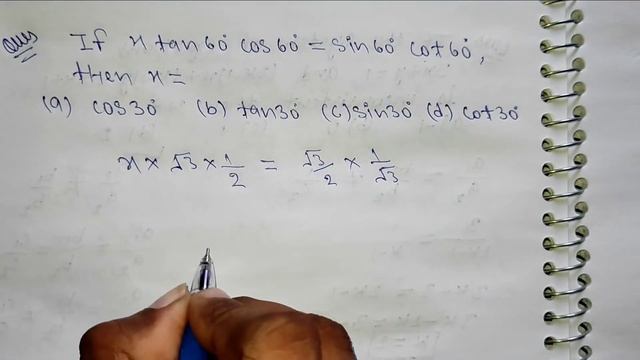 Ques
If x tan60° cos60° = sin60° cot60°,
then x =
(a) cos30° (b) tan30° (c) sin30° (d) cot30°
x × √3 × 1/2 = √3/2 × 1/√3